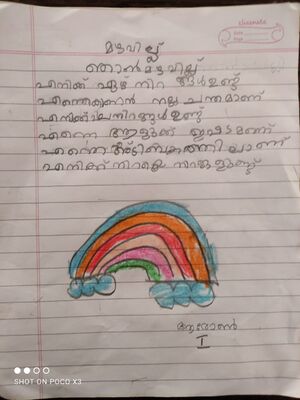 classmate
Date
Page
മഴവില്ല്
ഞാൻ മഴവില്ല്
എനിക്ക് ഏഴ് നിറ ങ്ങൾ ഉണ്ട്
എന്നെകാണാൻ നല്ല ചന്തമാണ്
എനിക്ക് പല നിറങ്ങൾ ഉണ്ട്
എന്നെ ആളുക്ക് ഇഷ്ടമാണ്
എന്നെ
എനിക്ക്
ആരോൺ
I
SHOT ON POCO X3